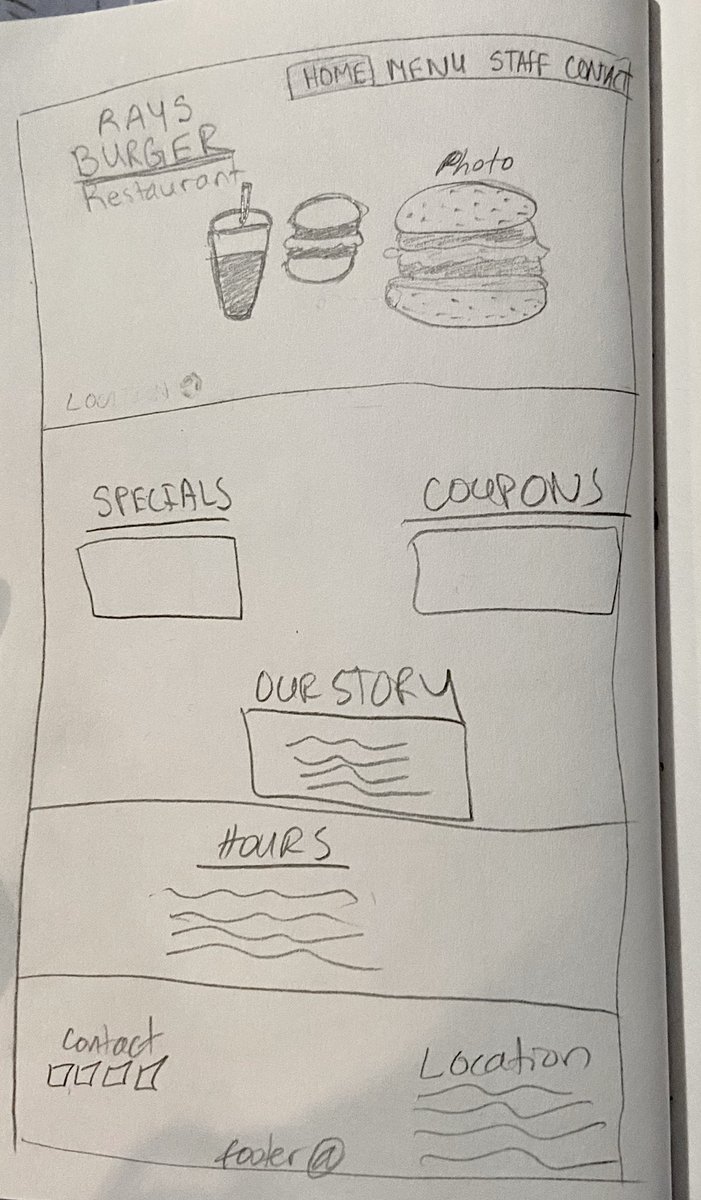 HOME MENU STAFF CONTACT
RAYS
BURGER
Restaurant
Photo
SPECIALS
COUPONS
OUR STORY
HOURS
Contact
Location
footer @